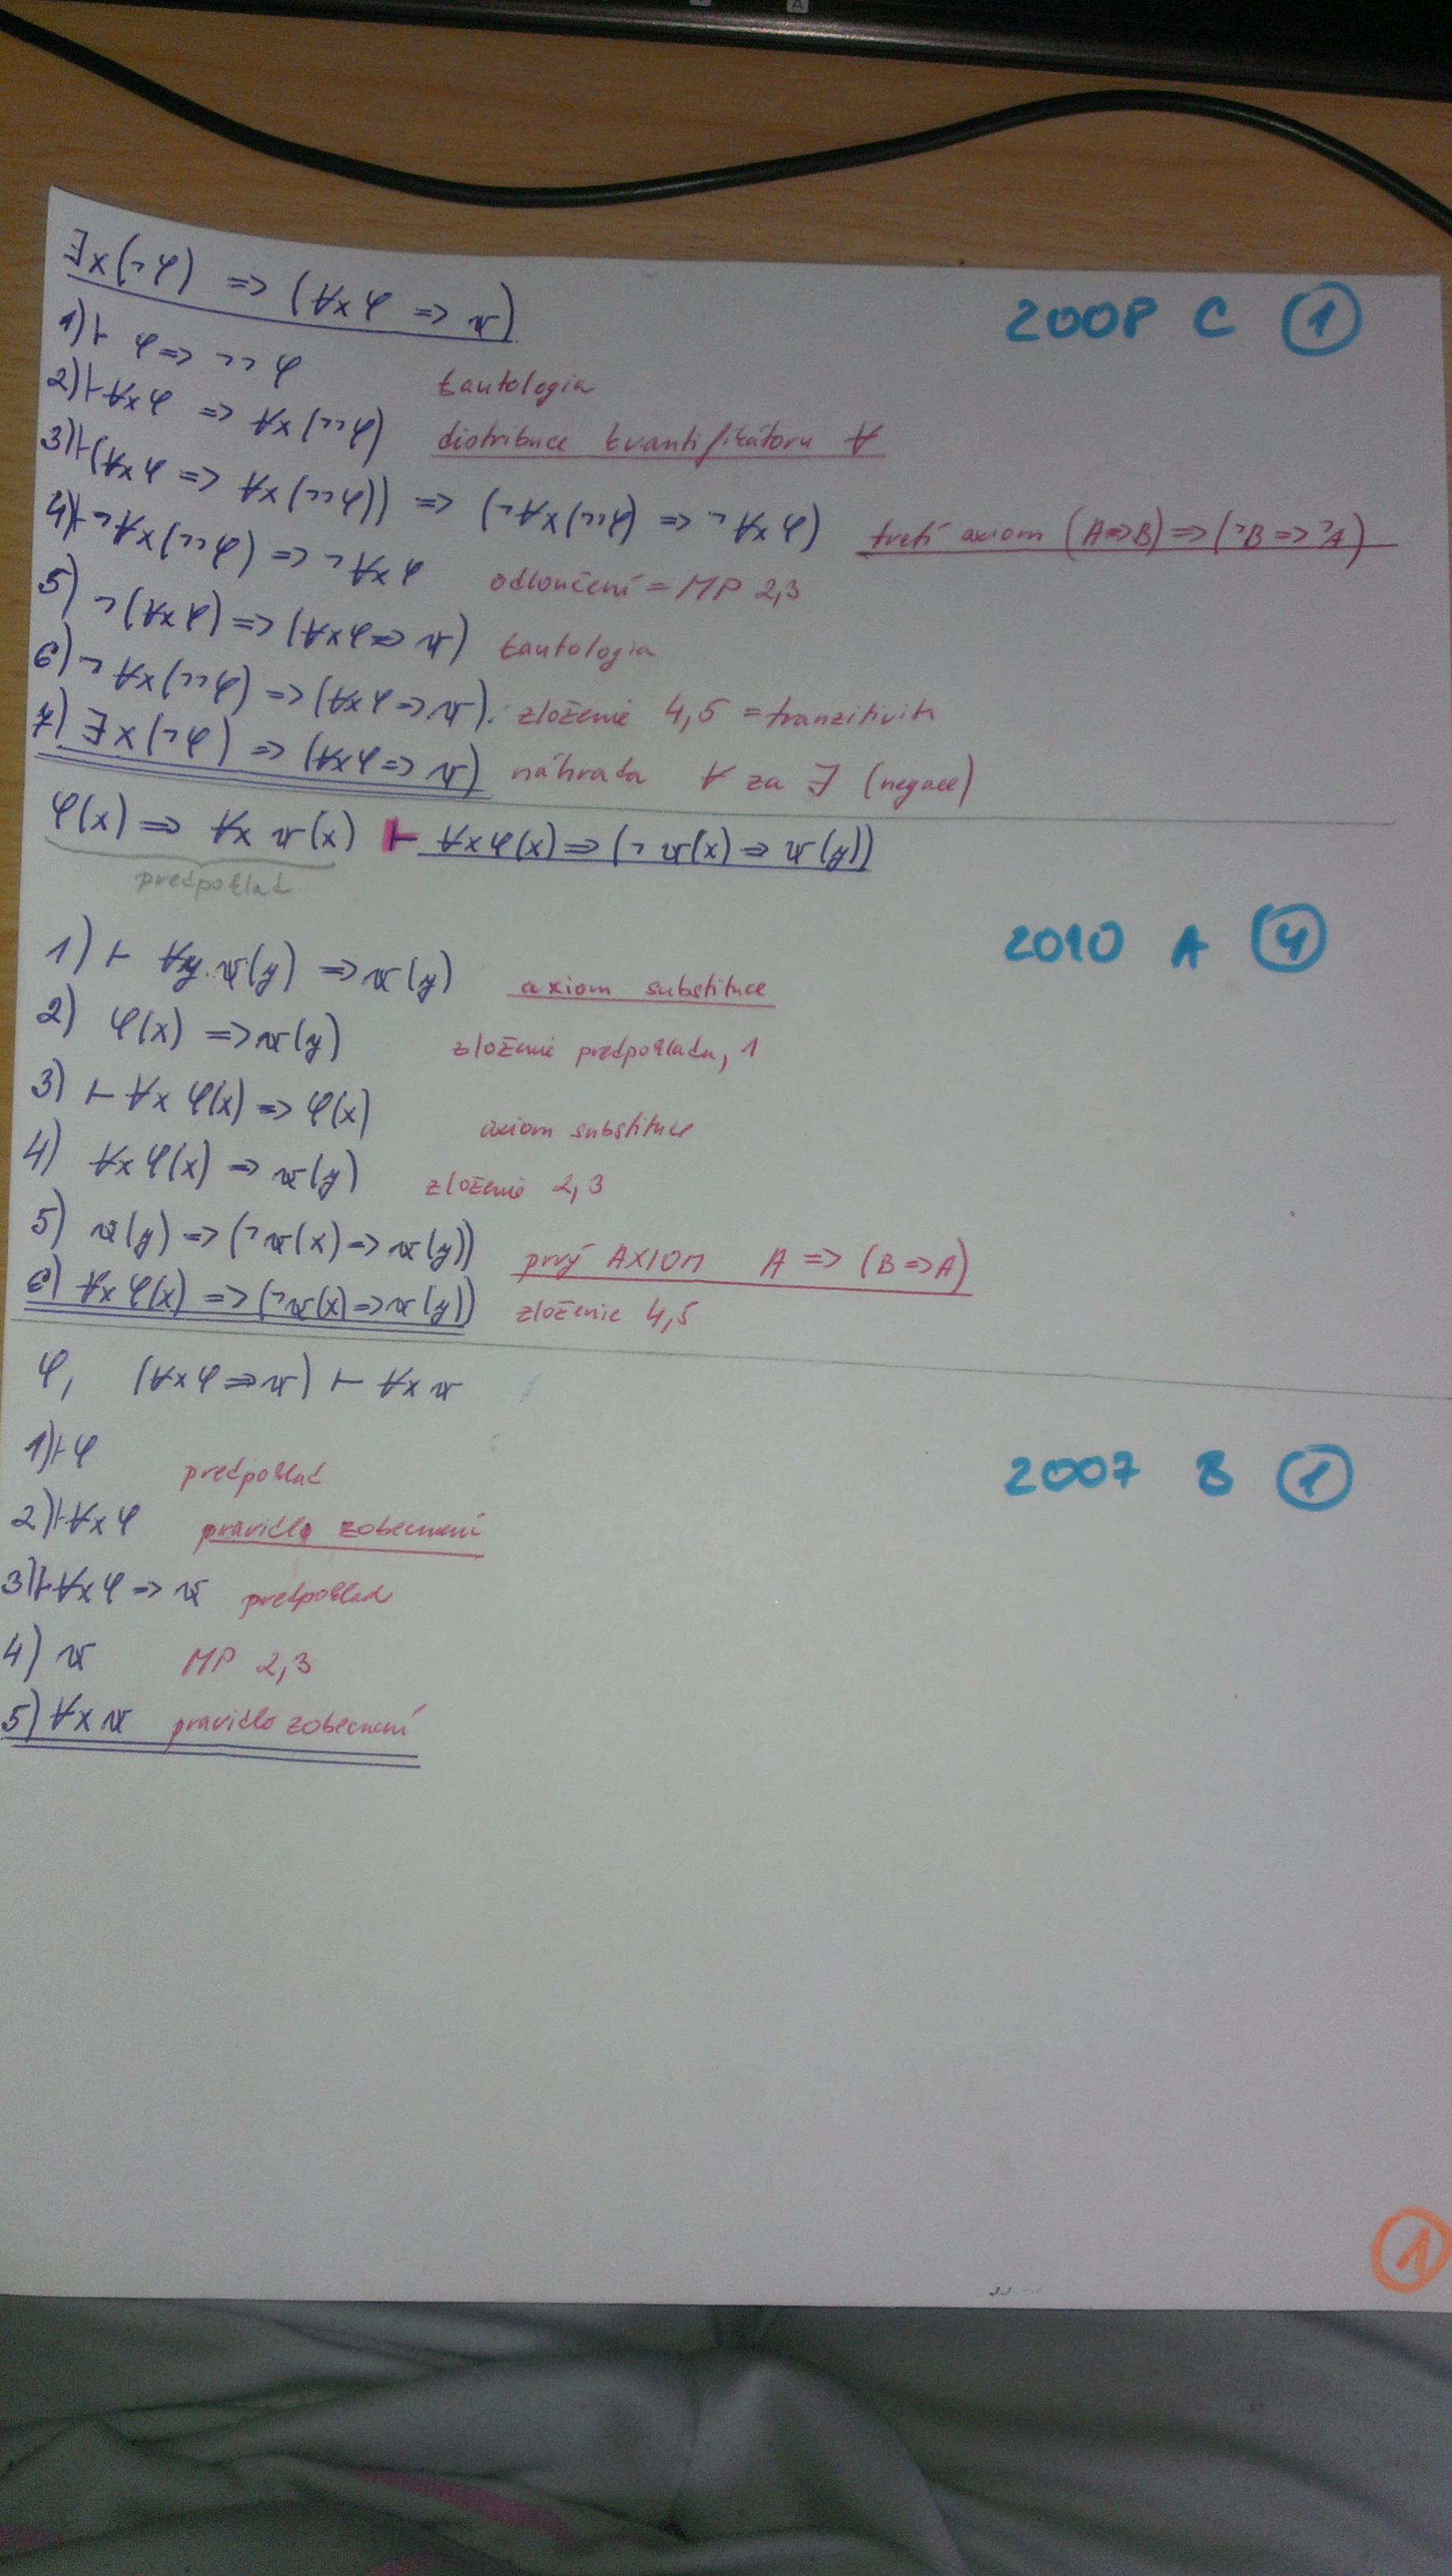 ∃x(¬φ) ⇒ (∀xφ ⇒ ψ)
2008 C 1
1) ⊢ φ ⇒ ¬¬φ tautologia
2) ⊢ ∀xφ ⇒ ∀x(¬¬φ) distribuce kvantifikátoru ∀
3) ⊢ (∀xφ ⇒ ∀x(¬¬φ)) ⇒ (¬∀x(¬¬φ) ⇒ ¬∀xφ) tretí axiom (A⇒B)⇒(¬B⇒¬A)
4) ⊢ ¬∀x(¬¬φ) ⇒ ¬∀xφ odloučení = MP 2,3
5) ¬(∀xφ) ⇒ (∀xφ ⇒ ψ) tautologia
6) ¬∀x(¬¬φ) ⇒ (∀xφ ⇒ ψ). zloženie 4,5 = tranzitivita
7) ∃x(¬φ) ⇒ (∀xφ ⇒ ψ) náhrada ∀ za ∃ (negace)
φ(x) ⇒ ∀x ψ(x) ⊢ ∀xφ(x) ⇒ (¬ψ(x) ⇒ ψ(y))
predpoklad
2010 A 4
1) ⊢ ∀y ψ(y) ⇒ ψ(y) axiom substituce
2) φ(x) ⇒ ψ(y) zloženie predpokladu, 1
3) ⊢ ∀x φ(x) ⇒ φ(x) axiom substituce
4) ∀x φ(x) ⇒ ψ(y) zloženie 2,3
5) ψ(y) ⇒ (¬ψ(x) ⇒ ψ(y)) prvý AXIOM A ⇒ (B⇒A)
6) ∀x φ(x) ⇒ (¬ψ(x) ⇒ ψ(y)) zloženie 4,5
φ, (∀xφ ⇒ ψ) ⊢ ∀x ψ
1) ⊢ φ predpoklad
2007 B 1
2) ⊢ ∀xφ pravidlo zobecnení
3) ⊢ ∀xφ ⇒ ψ predpoklad
4) ψ MP 2,3
5) ∀x ψ pravidlo zobecnení
1